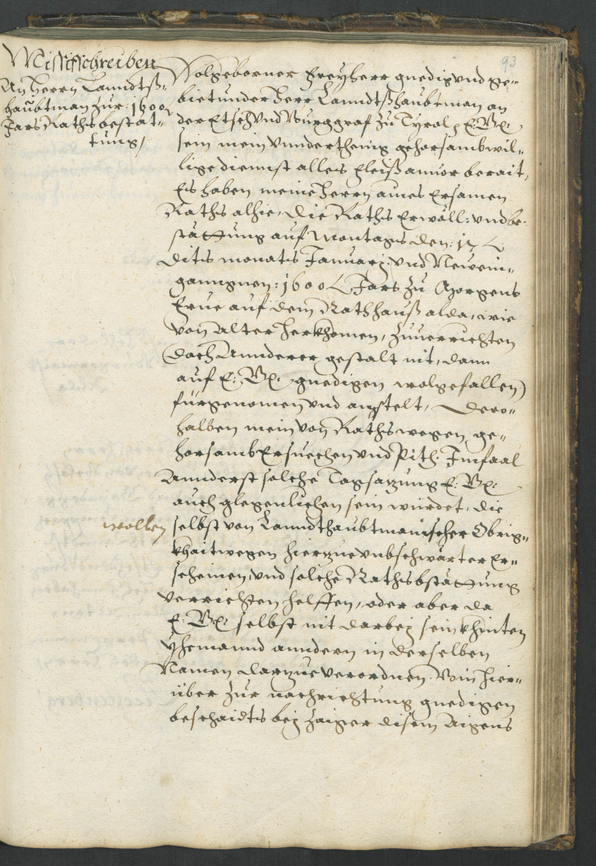 93
Missifschreiben
An Herrn Lanndtß-
haubtman zur 1600
Jars Raths bestät-
tung/
Wolgeborner Freyherr gnedig und ge-
bietunder Herr Lanndtßhaubtman an
der Etsch und Burggraf zu Tyrol, E: Gn:
sein mein underthenig gehorsamb wil-
lige dienst alles Fleiß anuor berait,
Eß haben meine Herrn aines Ersamen
Raths alhie, die Raths Erwöll: und be-
stättung auf Montags den: 17
ditß monats Januarj: und Newein-
ganngnen: 1600 Jars zu Morgens
Frue auf dem Rathhauß alda, wie
von alter herkhomen, zuuerrichten
(doch Annderer gestalt nit, dann
auf E: Gn: gnedigen wolgefallen)
fürgenomen und angstelt, Dero-
halben mein von Raths wegen, ge-
horsamb Ersuechen und Pith: Im faal
Annderst solche Tagsazung E: Gn:
auch glegenlichen sein würdet, die
wollen
selbst von Lanndthaubtmanischer Obrig-
khait wegen hierzue unbschwärter Er-
scheinen, und solche Raths bstättung
verrichten helffen, oder aber da
E: Gn: selbst nit darbej sein khinten
yhemannd anndern in derselben
Namen darzue verordnen. Umb hier-
über zur nachrichtung gnedigen
beschaidts bej zaiger disem aigens